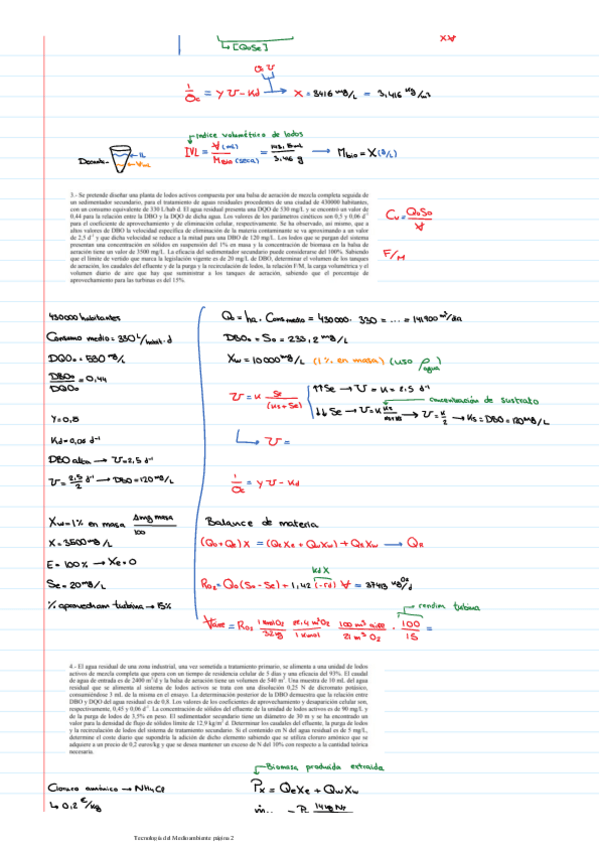 ↳[QoSe]
X∀
Θ, U
1/Θc = Y U - Kd → X = 3416 mg/L = 3,416 kg/m³
Indice volumétrico de lodos
Decante
IVL = ∀(mL)/MBio(seca) = /3,416 g → Mbio = X (g/L)
3.- Se pretende diseñar una planta de lodos activos compuesta por una balsa de aireación de mezcla completa seguida de
un sedimentador secundario, para el tratamiento de aguas residuales procedentes de una ciudad de 430000 habitantes,
con un consumo equivalente de 330 L/hab d. El agua residual presenta una DQO de 530 mg/L y se encontró un valor de
0,44 para la relación entre la DBO y la DQO de dicha agua. Los valores de los parámetros cinéticos son 0,5 y 0,06 d⁻¹
para el coeficiente de aprovechamiento y de eliminación celular, respectivamente. Se ha observado, así mismo, que a
altos valores de DBO la velocidad específica de eliminación de la materia contaminante se va aproximando a un valor
de 2,5 d⁻¹ y que dicha velocidad se reduce a la mitad para una DBO de 120 mg/L. Los lodos que se purgan del sistema
presentan una concentración en sólidos en suspensión del 1% en masa y la concentración de biomasa en la balsa de
aireación tiene un valor de 3500 mg/L. La eficacia del sedimentador secundario puede considerarse del 100%. Sabiendo
que el límite de vertido que marca la legislación vigente es de 20 mg/L de DBO, determinar el volumen de los tanques
de aeración, los caudales del efluente y de la purga y la recirculación de lodos, la relación F/M, la carga volumétrica y el
volumen diario de aire que hay que suministrar a los tanques de aeración, sabiendo que el porcentaje de
aprovechamiento para las turbinas es del 15%.
Cv = QoSo/∀
F/M
430000 habitantes
Consumo medio = 330 L/habit·d
DQOo = 530 mg/L
DBOo/DQOo = 0,44
Y = 0,5
Kd = 0,06 d⁻¹
DBO alta → U = 2,5 d⁻¹
U = 2,5/2 d⁻¹ → DBO = 120 mg/L
Xw = 1% en masa 1mg masa/100
X = 3500 mg/L
E = 100% → Xe = 0
Se = 20 mg/L
% aprovecham turbina → 15%
Qo = ha. Cons medio = 430000 · 330 = ... = 141900 m³/día
DBOo = So = 233,2 mg/L
Xw = 10000 mg/L (1% en masa) (uso ρagua)
U = K Se/(Ks+Se)
↑↑Se → U = K = 2,5 d⁻¹
concentración de sustrato
↓↓Se → U = K → U = K/2 → Ks = DBO = 120 mg/L
↳ U =
1/Θc = Y U - Kd
Balance de materia
(Qo + QR) X = (QeXe + QwXw) + QRXw → QR
Kd X
RO2 = Qo(So - Se) + 1,42 (-rd) ∀ = 37413 kg O2/d
rendim turbina
∀aire = RO2 1 kmol O2/32 kg 22,4 m³ O2/1 kmol 100 m³ aire/21 m³ O2 · 100/15 =
4.- El agua residual de una zona industrial, una vez sometida a tratamiento primario, se alimenta a una unidad de lodos
activos de mezcla completa que opera con un tiempo de residencia celular de 5 días y una eficacia del 93%. El caudal
de agua de entrada es de 2400 m³/d y la balsa de aeración tiene un volumen de 540 m³. Una muestra de 10 mL del agua
residual que se alimenta al sistema de lodos activos se trata con una disolución 0,25 N de dicromato potásico,
consumiéndose 3 mL de la misma en el ensayo. La determinación posterior de la DBO demuestra que la relación entre
DBO y DQO del agua residual es de 0,8. Los valores de los coeficientes de aprovechamiento y desaparición celular son,
respectivamente, 0,45 y 0,06 d⁻¹. La concentración de sólidos del efluente de la unidad de lodos activos es de 90 mg/L y
de la purga de lodos de 3,5% en peso. El sedimentador secundario tiene un diámetro de 30 m y se ha encontrado un
valor para la densidad de flujo de sólidos límite de 12,9 kg/m² d. Determinar los caudales del efluente, la purga de lodos
y la recirculación de lodos del sistema de tratamiento secundario. Si el contenido en N del agua residual es de 5 mg/L,
determine el coste diario que supondría la adición de dicho elemento sabiendo que se utiliza cloruro amónico que se
adquiere a un precio de 0,2 euros/kg y que se desea mantener un exceso de N del 10% con respecto a la cantidad teórica
necesaria.
Biomasa producida extraída
Cloruro amónico → NH4Cl
Px = QeXe + QwXw
↳ 0,2 €/kg
Tecnología del Medioambiente página 2